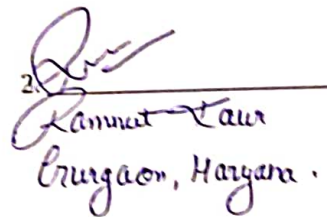 2.
Ramneet Kaur
Gurgaon, Haryana.